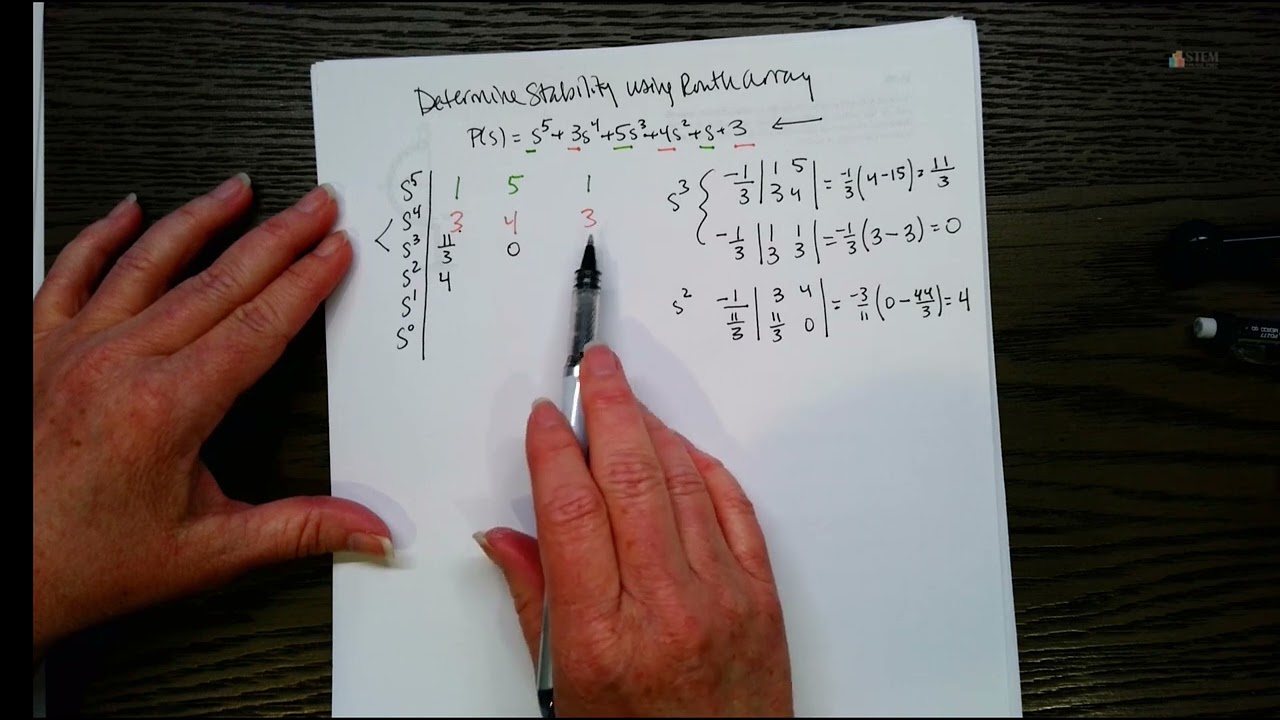 Determine Stability using Routh array
P(s) = s⁵ + 3s⁴ + 5s³ + 4s² + s + 3 ←
s⁵ | 1 5 1
s⁴ | 3 4 3
s³ | 11/3 0
s² | 4
s¹ |
s⁰ |
s³ { -1/3 | 1 5 ; 3 4 | = -1/3 (4-15) = 11/3
-1/3 | 1 1 ; 3 3 | = -1/3 (3-3) = 0
s² -1/(11/3) | 3 4 ; 11/3 0 | = -3/11 (0 - 44/3) = 4
STEM